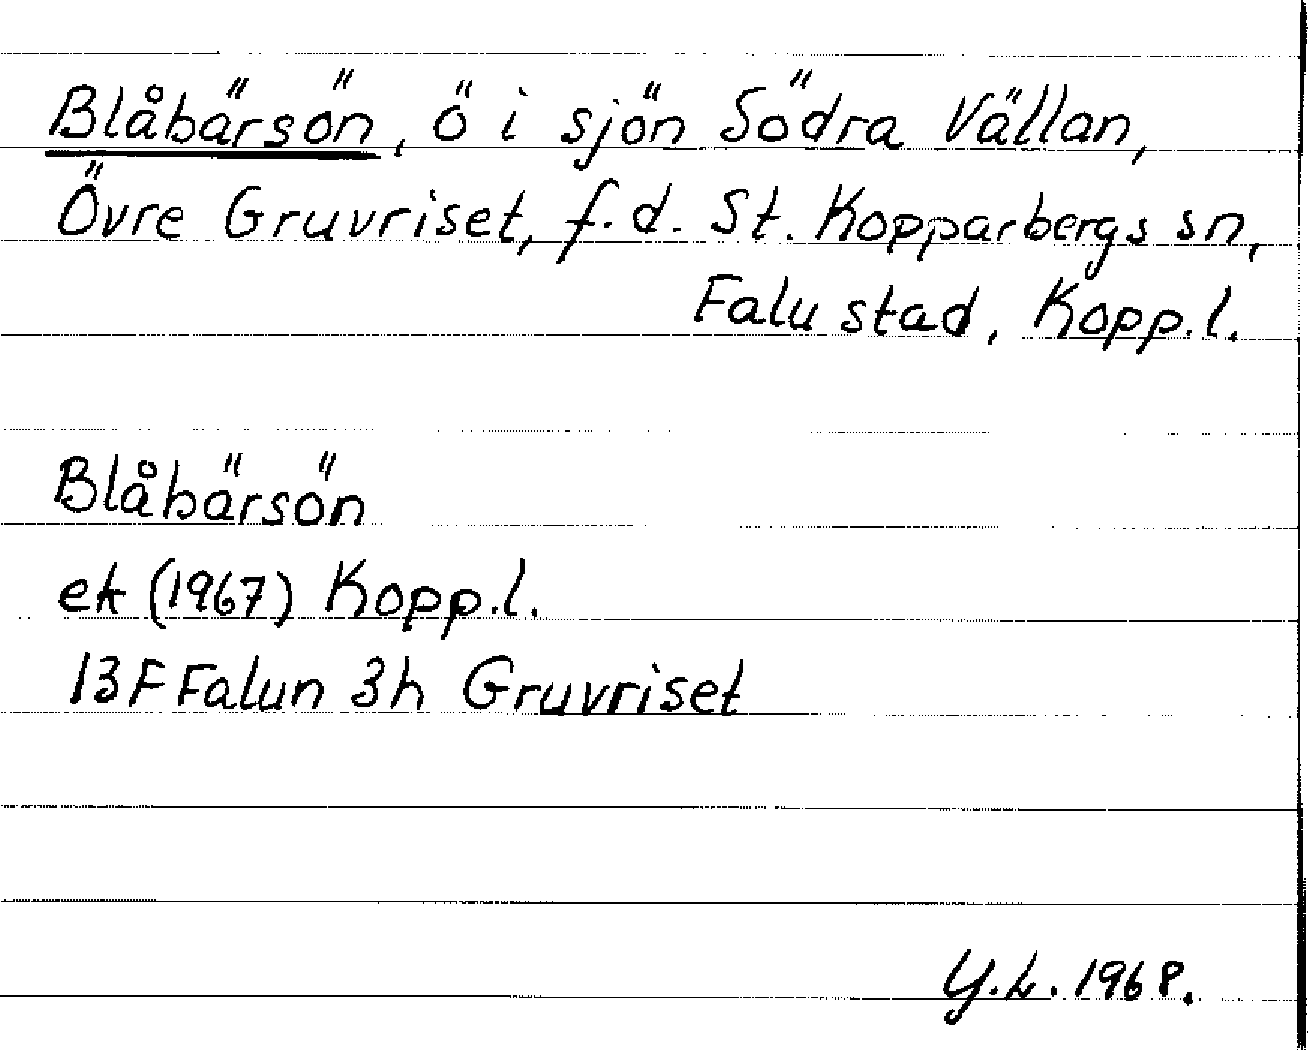 Blåbärsön, ö i sjön Södra Vällan,
Övre Gruvriset, f.d. St. Kopparbergs sn,
Falu stad, Kopp.l.
Blåbärsön
ek (1967) Kopp.l.
13F Falun 3h Gruvriset
Y.L. 1968.